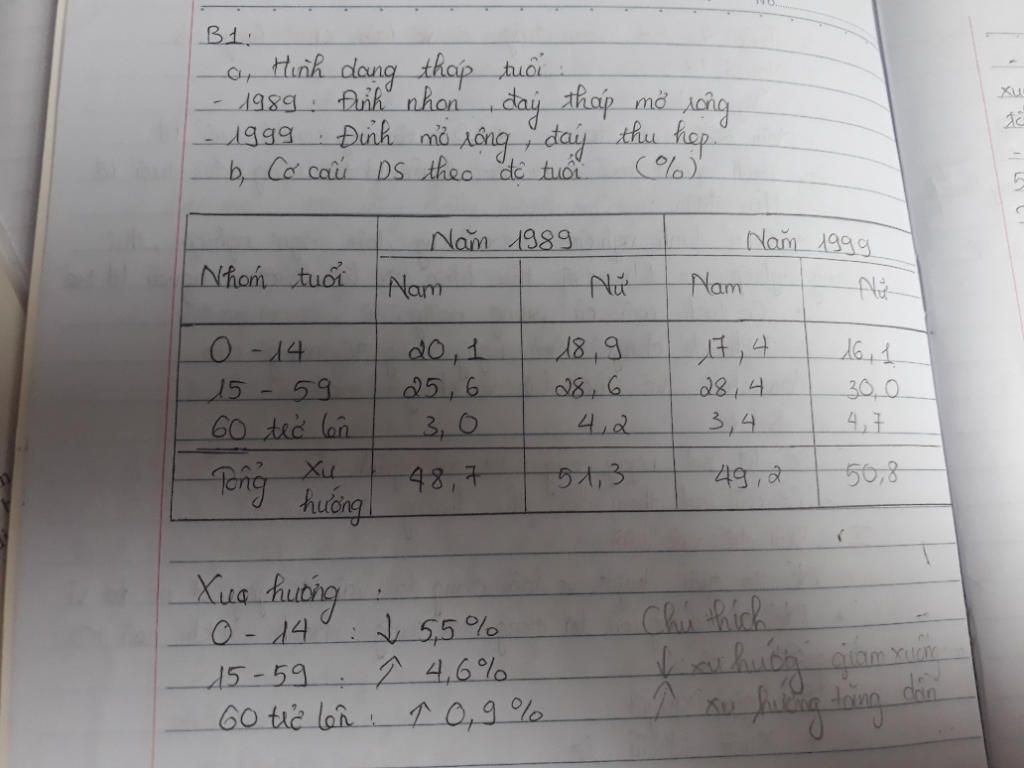 B1:
a, Hình dạng tháp tuổi:
- 1989: Đỉnh nhọn, đáy tháp mở rộng
- 1999: Đỉnh mở rộng, đáy thu hẹp.
b, Cơ cấu DS theo độ tuổi (%)
Năm 1989 Năm 1999
Nhóm tuổi Nam Nữ Nam Nữ
0 - 14 20,1 18,9 17,4 16,1
15 - 59 25,6 28,6 28,4 30,0
60 trở lên 3,0 4,2 3,4 4,7
Tổng xu 48,7 51,3 49,2 50,8
hướng
Xua hướng:
0 - 14 : ↓ 5,5% Chú thích
15 - 59 : ↑ 4,6% ↓ xu hướng giảm xuống
60 trở lên : ↑ 0,9% ↑ xu hướng tăng dần